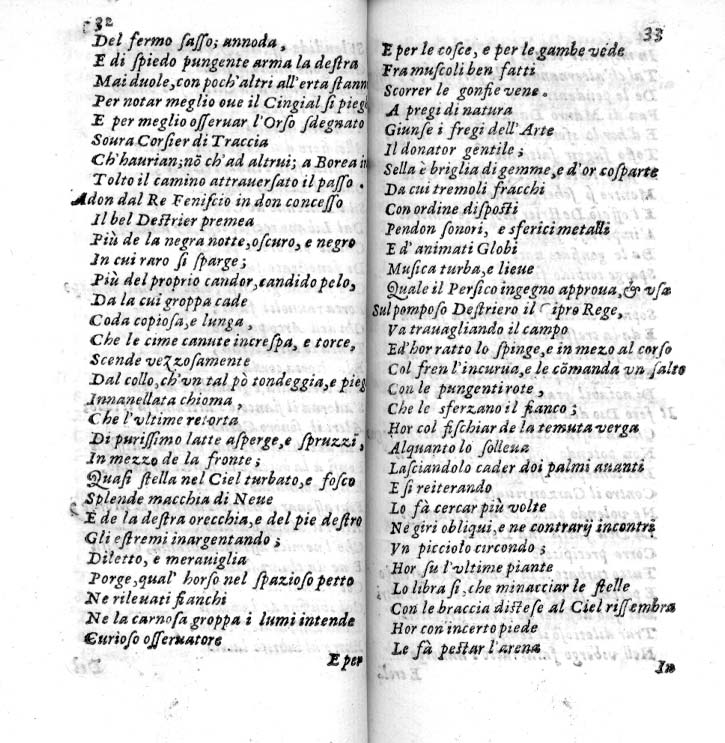 32
Del fermo sasso; annoda,
E di spiedo pungente arma la destra
Mai duole, con poch'altri all'erta stann
Per notar meglio oue il Cingial si pieg
E per meglio osseruar l'Orso sdegnato
Soura Corsier di Traccia
Ch'haurian; nõ ch'ad altrui; a Borea i
Tolto il camino attrauersato il passo.
Adon dal Re Feniscio in don concesso
Il bel Destrier premea
Più de la negra notte, oscuro, e negro
In cui raro si sparge;
Più del proprio candor, candido pelo,
Da la cui groppa cade
Coda copiosa, e lunga,
Che le cime canute increspa, e torce,
Scende vezzosamente
Dal collo, ch'vn tal pò tondeggia, e pieg
Innanellata chioma,
Che l'vltime retorta
Di purissimo latte asperge, e spruzzi,
In mezzo de la fronte;
Quasi stella nel Ciel turbato, e fosco
Splende macchia di Neue
E de la destra orecchia, e del pie destro
Gli estremi inargentando;
Diletto, e merauiglia
Porge, qual' horso nel spazioso petto
Ne rileuati fianchi
Ne la carnosa groppa i lumi intende
Curioso osseruatore
E per
33
E per le cosce, e per le gambe vede
Fra muscoli ben fatti
Scorrer le gonfie vene.
A pregi di natura
Giunse i fregi dell'Arte
Il donator gentile;
Sella è briglia di gemme, e d'or cosparte
Da cui tremoli fracchi
Con ordine disposti
Pendon sonori, e sferici metalli
E d'animati Globi
Musica turba, e lieue
Quale il Persico ingegno approua, & vsa
Sul pomposo Destriero il Cipro Rege,
Va trauagliando il campo
Ed'hor ratto lo spinge, e in mezo al corso
Col fren l'incurua, e le cõmanda vn salto
Con le pungenti rote,
Che le sferzano il fianco;
Hor col fischiar de la temuta verga
Alquanto lo solleua
Lasciandolo cader doi palmi auanti
E si reiterando
Lo fà cercar più volte
Ne giri obliqui, e ne contrarij incontri
Vn picciolo circondo;
Hor su l'vltime piante
Lo libra si, che minacciar le stelle
Con le braccia distese al Ciel rissembra
Hor con incerto piede
Le fà pestar l'arena
In